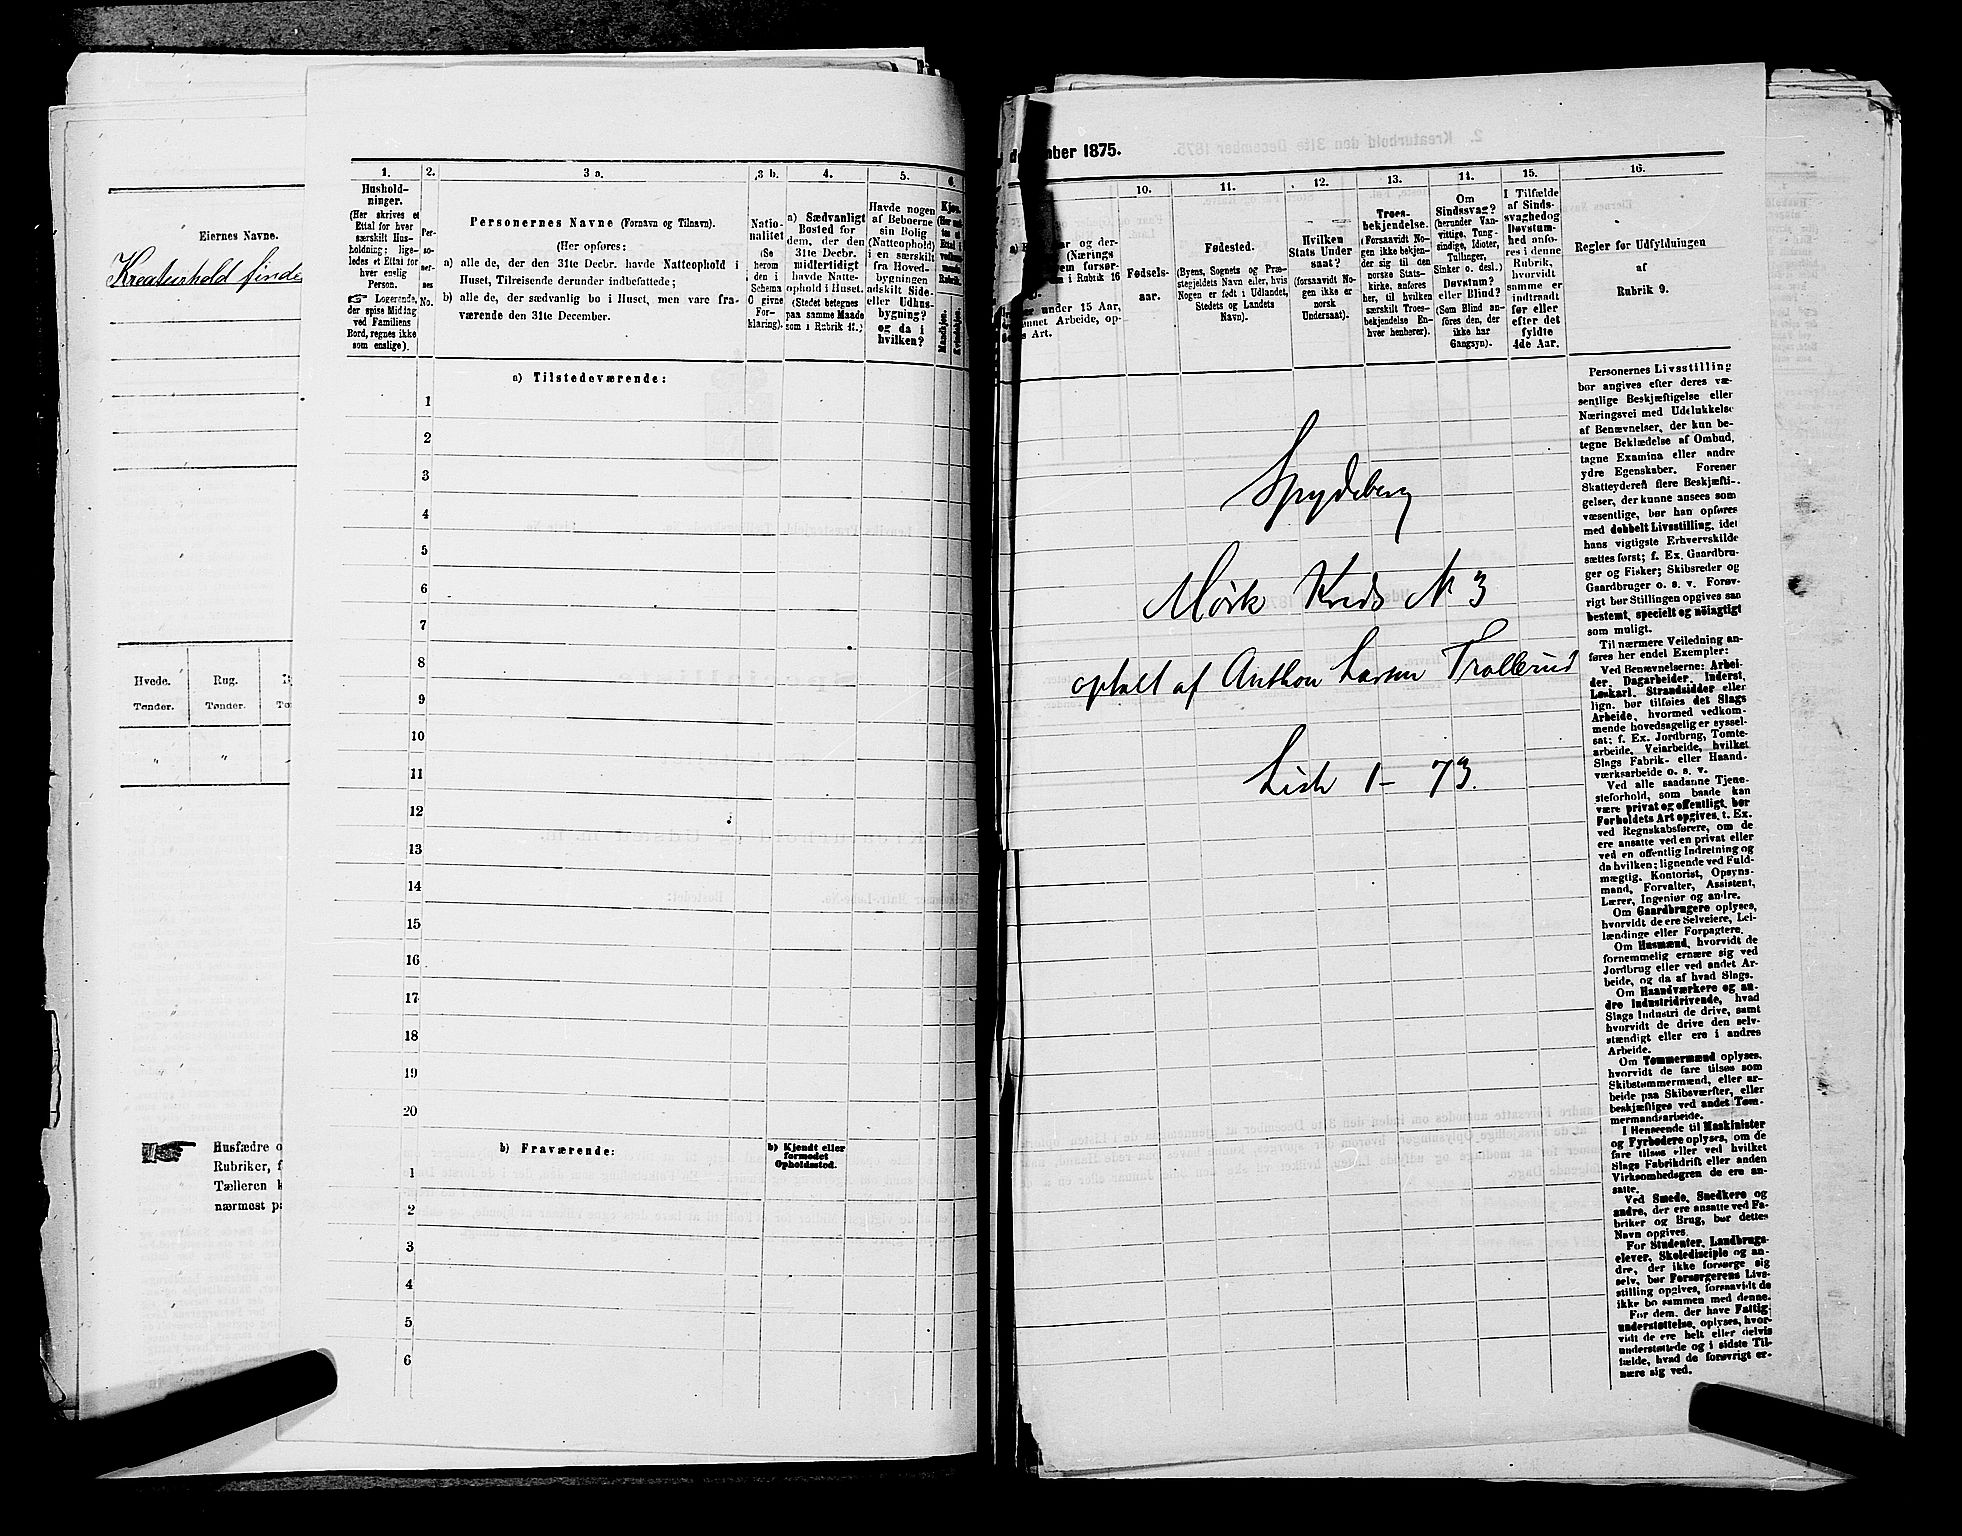 Eiernes Navne.
Kreaturhold finde
Hvede.
Tønder.
Rug.
Tønder.
"
"
Husfædre o
Rubriker, f
Tælleren k
nærmest p
1.
Hushold-
ninger.
(Her skrives et
Ettal for hver
særskilt Hus-
holdning; lige-
ledes et Ettal for
hver enslig
Person.
Logerende,
der spise Middag
ved Familiens
Bord, regnes ikke
som enslige).
2.
Per-
so-
ner-
nes
No.
3 a.
Personernes Navne (Fornavn og Tilnavn).
(Her opføres:
a) alle de, der den 31te Decbr. havde Natteophold i
Huset, Tilreisende derunder indbefattede;
b) alle de, der sædvanlig bo i Huset, men vare fra-
værende den 31te December.
3 b.
Natio-
nalitet
(Se
herom
den i
Schema
C givne
For-
klaring).
4.
a) Sædvanligt
Bosted for
dem, der den
31te Decbr.
midlertidigt
havde Natte-
ophold i Huset.
(Stedet betegnes
paa samme Maade
som i Rubrik 11.)
5.
Havde nogen
af Beboerne
sin Bolig
(Natteophold)
i en særskilt
fra Hoved-
bygningen
adskilt Side-
eller Udhus-
bygning?
og da i
hvilken?
6.
Kjøn.
Mandkjøn.
Kvindekjøn.
a) Tilstedeværende:
1
2
3
4
5
6
7
8
9
10
11
12
13
14
15
16
17
18
19
20
b) Fraværende:
b) Kjendt eller
formodet
Opholdssted.
1
2
3
4
5
6
mber 1875.
ar og der-
(Nærings
em forsør-
i Rubrik 16
under 15 Aar,
ønnet Arbeide, op-
s Art.
10.
Fødsels-
aar.
11.
Fødested.
(Byens, Sognets og Præ-
stegjeldets Navn eller, hvis
Nogen er født i Udlandet,
Stedets og Landets
Navn).
12.
Hvilken
Stats Under
saat?
(forsaavidt No-
gen ikke er
norsk
Undersaat).
13.
Troes-
bekjendelse.
(Forsaavidt No-
gen ikke bekjen-
der sig til den
norske Stats-
kirke, anføres
her, til hvilken
særskilt Troes-
bekjendelse En-
hver henhører).
14.
Om
Sindssvag?
(herunder Van-
vittige, Tung-
sindige, Idioter,
Tullinger,
Sinker o. desl.)
Døvstum?
eller Blind?
(Som Blind an-
føres den, der
ikke har
Gangsyn).
15.
I Tilfælde
af Sinds-
svaghed og
Døvstum-
hed anfø-
res i denne
Rubrik,
hvorvidt
samme er
indtraadt
før eller
efter det
fyldte
4de Aar.
16.
Regler før Udfyldningen
af
Rubrik 9.
Spydeberg
Mørk Kreds N 3
optalt af Anthon Larsen Trollerud
Liste 1 - 73.
Personernes Livsstilling
bør angives efter deres væ-
sentlige Beskjæftigelse eller
Næringsvei med Udelukkelse
af Benævnelser, der kun be-
tegne Beklædelse af Ombud,
tagne Examina eller andre
ydre Egenskaber. Forener
Skatteyderen flere Beskjæfti-
gelser, der kunne ansees som
væsentlige, bør han opføres
med dobbelt Livsstilling, idet
hans vigtigste Erhvervskilde
sættes først; f. Ex. Gaardbru-
ger og Fisker; Skibsreder og
Gaardbruger o. s. v. Forøv-
rigt bør Stillingen opgives saa
bestemt, specielt og nöiagtigt
som muligt.
Til nærmere Veiledning an-
føres her endel Exempler:
Ved Benævnelserne: Arbei-
der, Dagarbeider, Inderst,
Løskarl, Strandsidder eller
lign. bør tilføies det Slags
Arbeide, hvormed vedkom-
mende hovedsagelig er syssel-
sat; f. Ex. Jordbrug, Tomte-
arbeide, Veiarbeide, hvilket
Slags Fabrik- eller Haand-
værksarbeide o. s. v.
Ved alle saadanne Tjene-
steforhold, som baade kan
være privat og offentligt, bør
Forholdets Art opgives, t. Ex.
ved Regnskabsførere, om de
ere ansatte ved en privat eller
ved en offentlig Indretning og
da hvilken; lignende ved Fuld-
mægtig, Kontorist, Opsyns-
mand, Forvalter, Assistent,
Lærer, Ingeniør og andre.
Om Gaardbrugere oplyses,
hvorvidt de ere Selveiere, Lei-
lændinge eller Forpagtere.
Om Husmænd, hvorvidt de
fornemmelig ernære sig ved
Jordbrug eller ved andet Ar-
beide, og da af hvad Slags.
Om Haandværkere og an-
dre Industridrivende, hvad
Slags Industri de drive, samt
hvorvidt de drive den selv-
stændigt eller ere i andres
Arbeide.
Om Tømmermænd oplyses,
hvorvidt de fare tilsøs som
Skibstømmermænd, eller ar-
beide paa Skibsværfter, eller
beskjæftiges ved andet Tøm-
mermandsarbeide.
I Henseende til Maskinister
og Fyrbødere oplyses, om de
fare tilsøs eller ved hvilket
Slags Fabrikdrift eller anden
Virksombedsgren de ere an-
satte.
Ved Smede, Snedkere og
andre, der ere ansatte ved Fa-
briker og Brug, bør dettes
Navn opgives.
For Studenter, Landbrugs-
elever, Skoledisciple og an-
dre, der ikke forsørge sig
selv, bør Forsørgerens Livs-
stilling opgives, forsaavidt de
ikke bo sammen med denne.
For dem, der have Fattig-
understøttelse, oplyses, hvor-
vidt de ere helt eller delvis
understøttede og i sidste Til-
fælde, hvad de forøvrigt er-
nære sig ved.